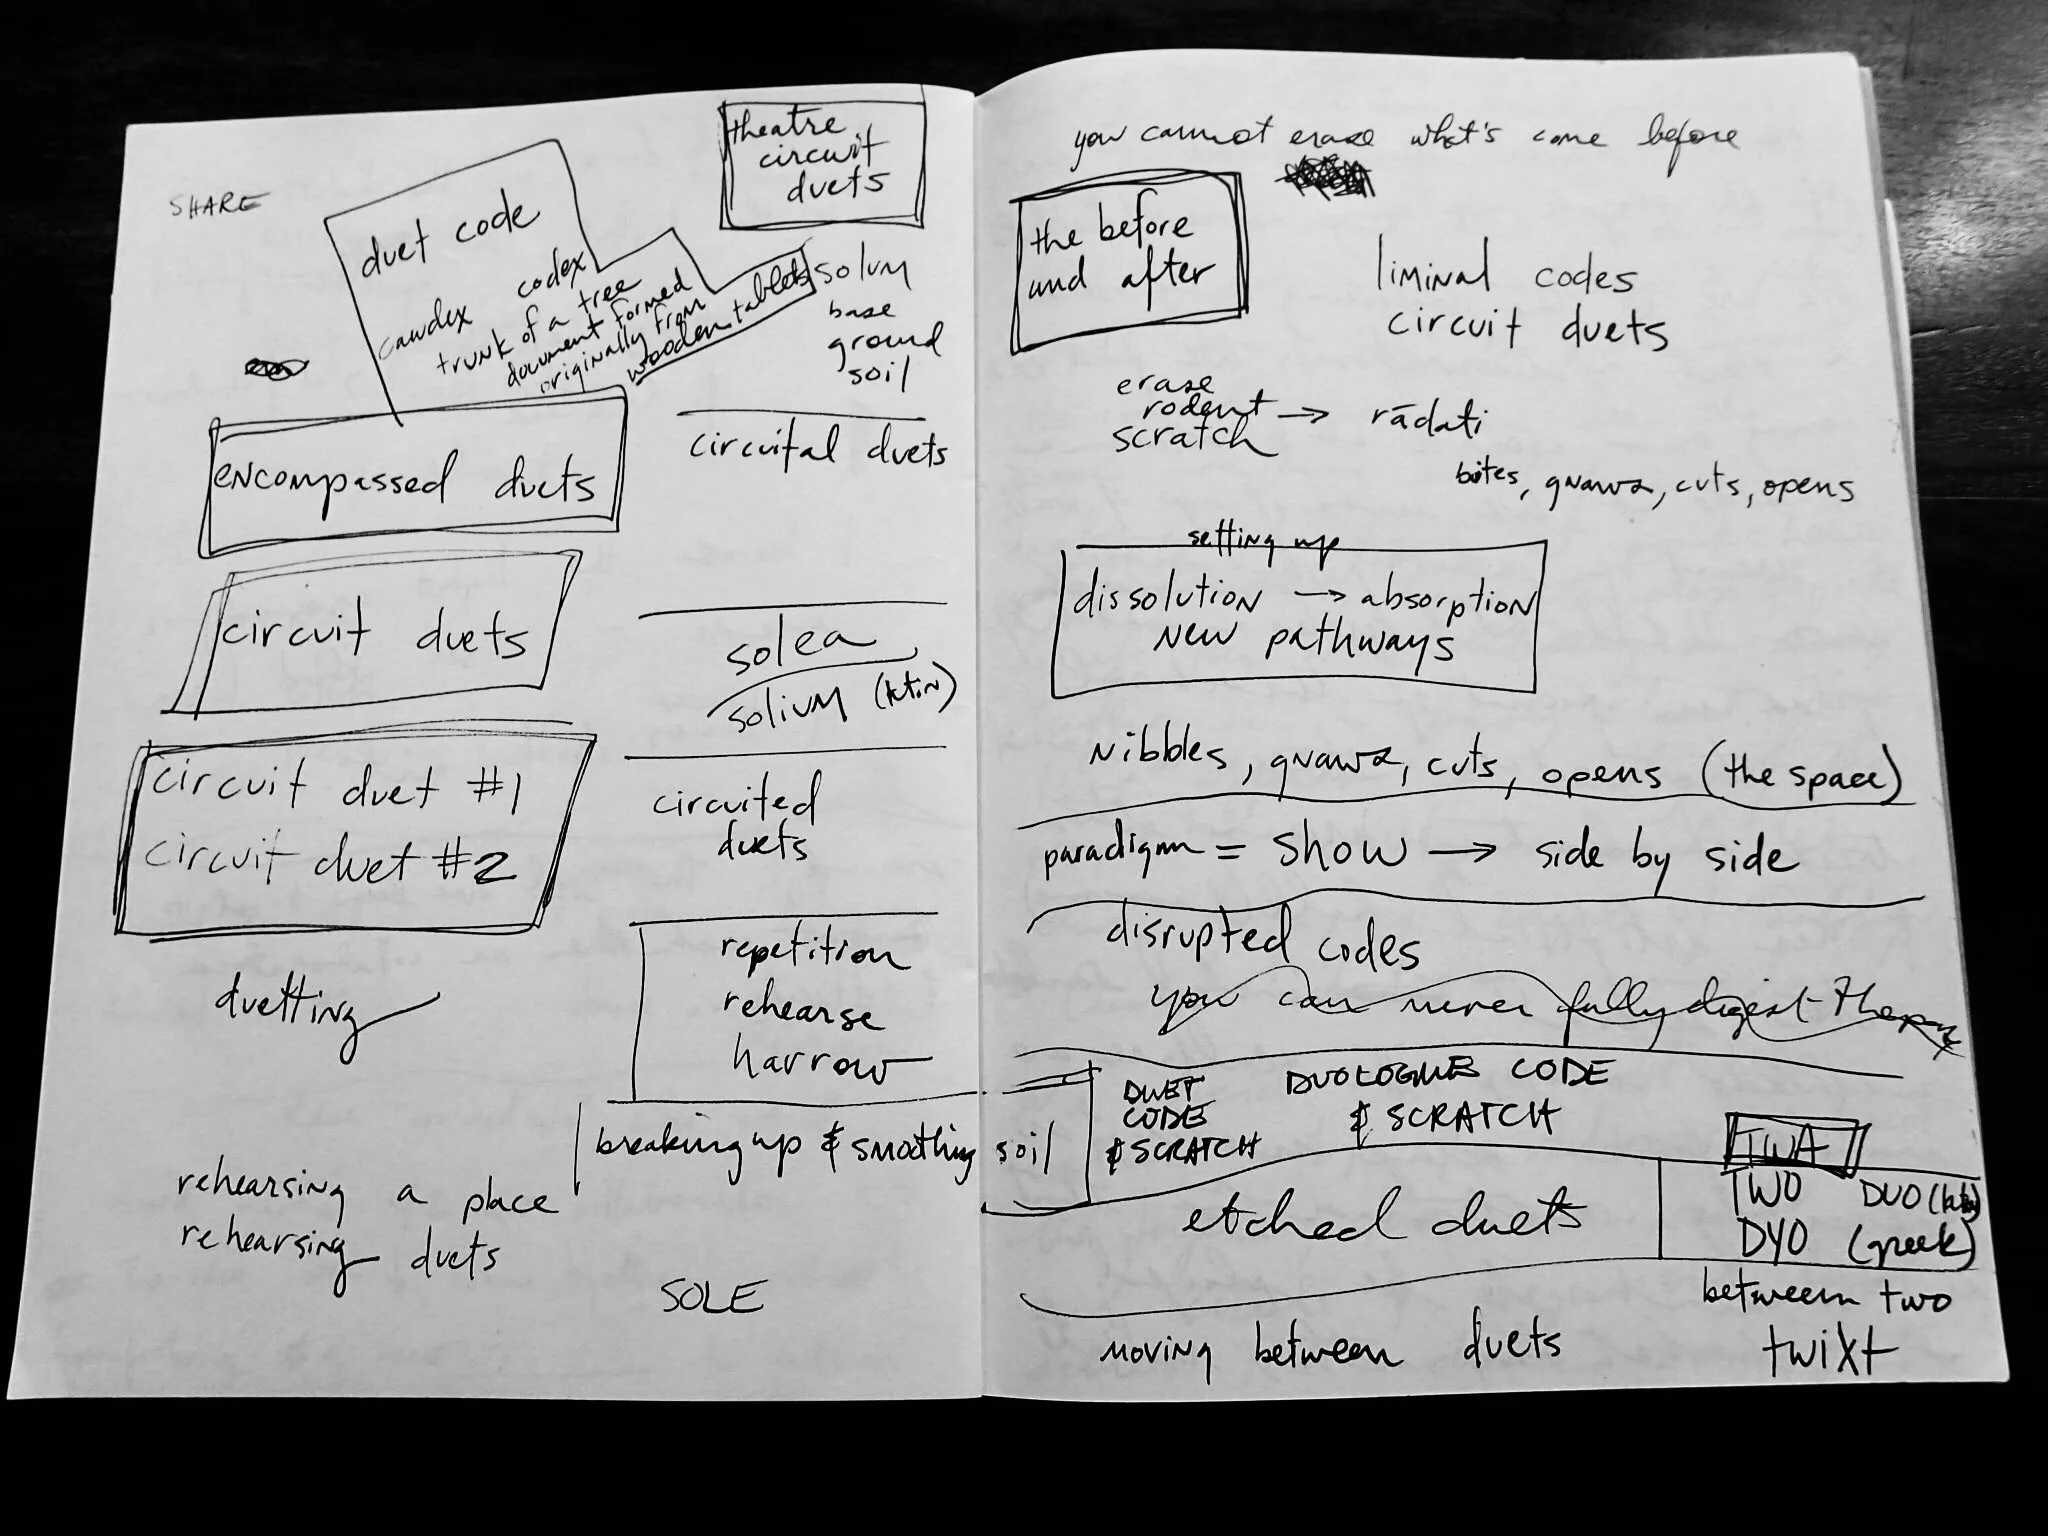 SHARE
duet code
codex
caudex
trunk of a tree
document formed
originally from
wooden tablets
encompassed duets
circuit duets
circuit duet #1
circuit duet #2
duetting
rehearsing a place
rehearsing duets
theatre
circuit
duets
solum
base
ground
soil
circuital duets
solea
solium (latin)
circuited
duets
repetition
rehearse
harrow
breaking up & smoothing soil
SOLE
you cannot erase what's come before
the before
and after
liminal codes
circuit duets
erase
rodent → rādati
scratch
bites, gnaws, cuts, opens
setting up
dissolution → absorption
new pathways
nibbles, gnaws, cuts, opens (the space)
paradigm = show → side by side
disrupted codes
you can never fully digest
DUET
CODE
& SCRATCH
DUOLOGUES CODE
& SCRATCH
etched duets
TWA
TWO DUO (latin)
DYO (greek)
between two
twixt
moving between duets